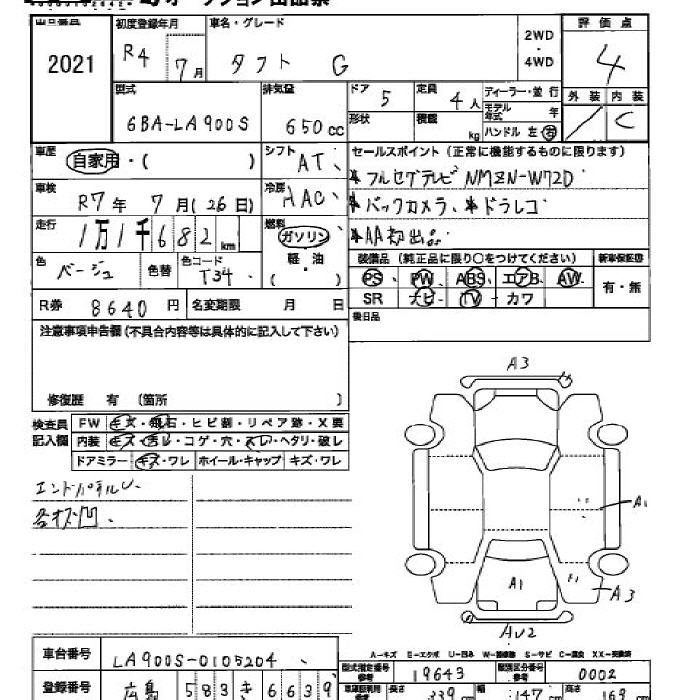 出品番号 初度登録年月 車名・グレード 評価点
2021 R4 7月 タフト G 2WD ・ 4WD 4
型式 排気量 ドア 5 定員 4人 ディーラー・並行 外装 内装
6BA-LA900S 650cc 形状 積載 kg モデル年式 年 ハンドル 左 右 / C
車歴 自家用・( ) シフト AT セールスポイント (正常に機能するものに限ります)
車検 R7年 7月(26日) 冷房 AAC *フルセグテレビ NMZN-W72D
走行 1万1千682km 燃料 ガソリン *バックカメラ、*ドラレコ
軽・油 *AA初出品
色 ベージュ 色替 色コード T34 ( 装備品 (純正品に限り○をつけてください) 新車保証書
R券 8640円 名変期限 月 日 PS PW ABS エアB AW 有・無
SR ナビ TV カワ
注意事項申告欄(不具合内容等は具体的に記入して下さい) 後日品
修復歴 有 (箇所 )
検査員記入欄 FW キズ・飛石・ヒビ割・リペア跡・X要
内装 キズ・汚レ・コゲ・穴・スレ・ヘタリ・破レ
ドアミラー キズ・ワレ ホイール・キャップ キズ・ワレ
エンドパネルU
各キズ凹
A3
A1
A1
A3
AU2
A-キズ E-エクボ U-凹み W-補修跡 S-サビ C-腐食 XX-交換済
車台番号 LA900S-0105204 型式指定番号 19643 類別区分番号 0002
登録番号 広島 583 き 6639 長さ 339cm 幅 147cm 高さ 163cm